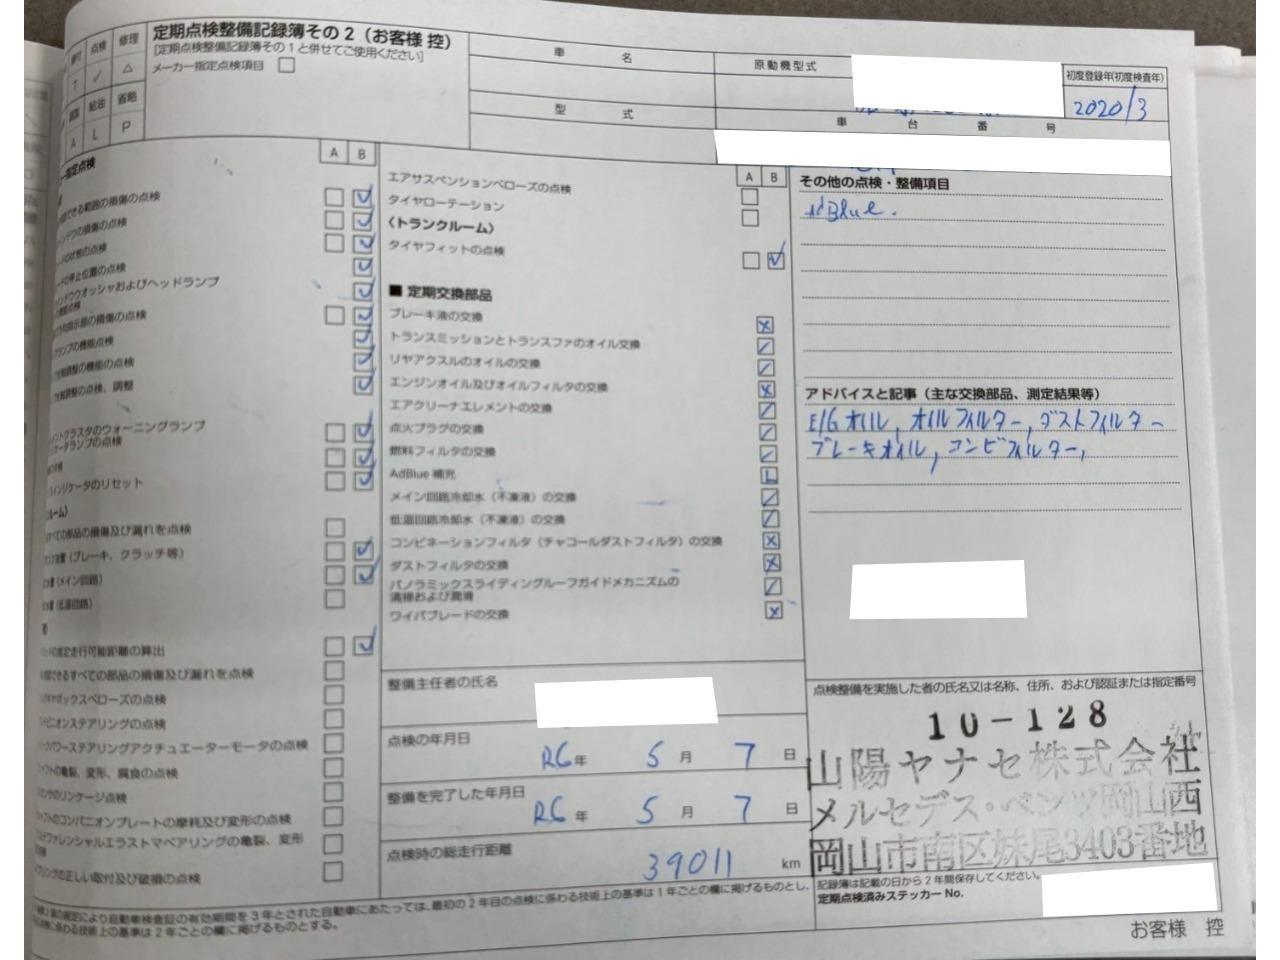 定期点検整備記録簿その2（お客様 控）
[定期点検整備記録簿その1と併せてご使用ください]
メーカー指定点検項目
点検 修理
T ✓ △
給油 省略
A L P
車名
原動機型式
初度登録年(初度検査年)
2020/3
型式
車台番号
A B
指定点検
できる範囲の損傷の点検
の損傷の点検
の状態の点検
の停止位置の点検
ウインドウウオッシャおよびヘッドランプ
機能点検
指示器の損傷の点検
ランプの機能点検
調整の機能点検
の点検、調整
クラスタのウォーニングランプ
ランプの点検
インジケータのリセット
ルーム)
すべての部品の損傷及び漏れを点検
(ブレーキ、クラッチ等)
(メイン回路)
(低温回路)
推定走行可能距離の算出
できるすべての部品の損傷及び漏れを点検
ギヤボックスベローズの点検
ピニオンステアリングの点検
パワーステアリングアクチュエーターモータの点検
の亀裂、変形、腐食の点検
のリンケージ点検
のコンパニオンプレートの摩耗及び変形の点検
ファレンシャルエラストマベアリングの亀裂、変形
リングの正しい取付及び破損の点検
A B
エアサスペンションベローズの点検
タイヤローテーション
〈トランクルーム〉
タイヤフィットの点検
■ 定期交換部品
ブレーキ液の交換
トランスミッションとトランスファのオイル交換
リヤアクスルのオイルの交換
エンジンオイル及びオイルフィルタの交換
エアクリーナエレメントの交換
点火プラグの交換
燃料フィルタの交換
AdBlue 補充 L
メイン回路冷却水（不凍液）の交換
低温回路冷却水（不凍液）の交換
コンビネーションフィルタ（チャコールダストフィルタ）の交換
ダストフィルタの交換
パノラミックスライディングルーフガイドメカニズムの
清掃および潤滑
ワイパブレードの交換
整備主任者の氏名
点検の年月日
R6年 5月 7日
整備を完了した年月日
R6年 5月 7日
点検時の総走行距離
39011 km
その他の点検・整備項目
AdBlue.
アドバイスと記事（主な交換部品、測定結果等）
E/Gオイル, オイルフィルター, ダストフィルター
ブレーキオイル, コンビフィルター,
点検整備を実施した者の氏名又は名称、住所、および認証または指定番号
10-128
山陽ヤナセ株式会社
メルセデス・ベンツ岡山西
岡山市南区妹尾3403番地
記録簿は記載の日から2年間保存してください。
定期点検済みステッカー No.
により自動車検査証の有効期間を3年とされた自動車にあたっては、最初の2年目の点検に係わる技術上の基準は1年ごとの欄に掲げるものとし、
に係わる技術上の基準は2年ごとの欄に掲げるものとする。
お客様 控